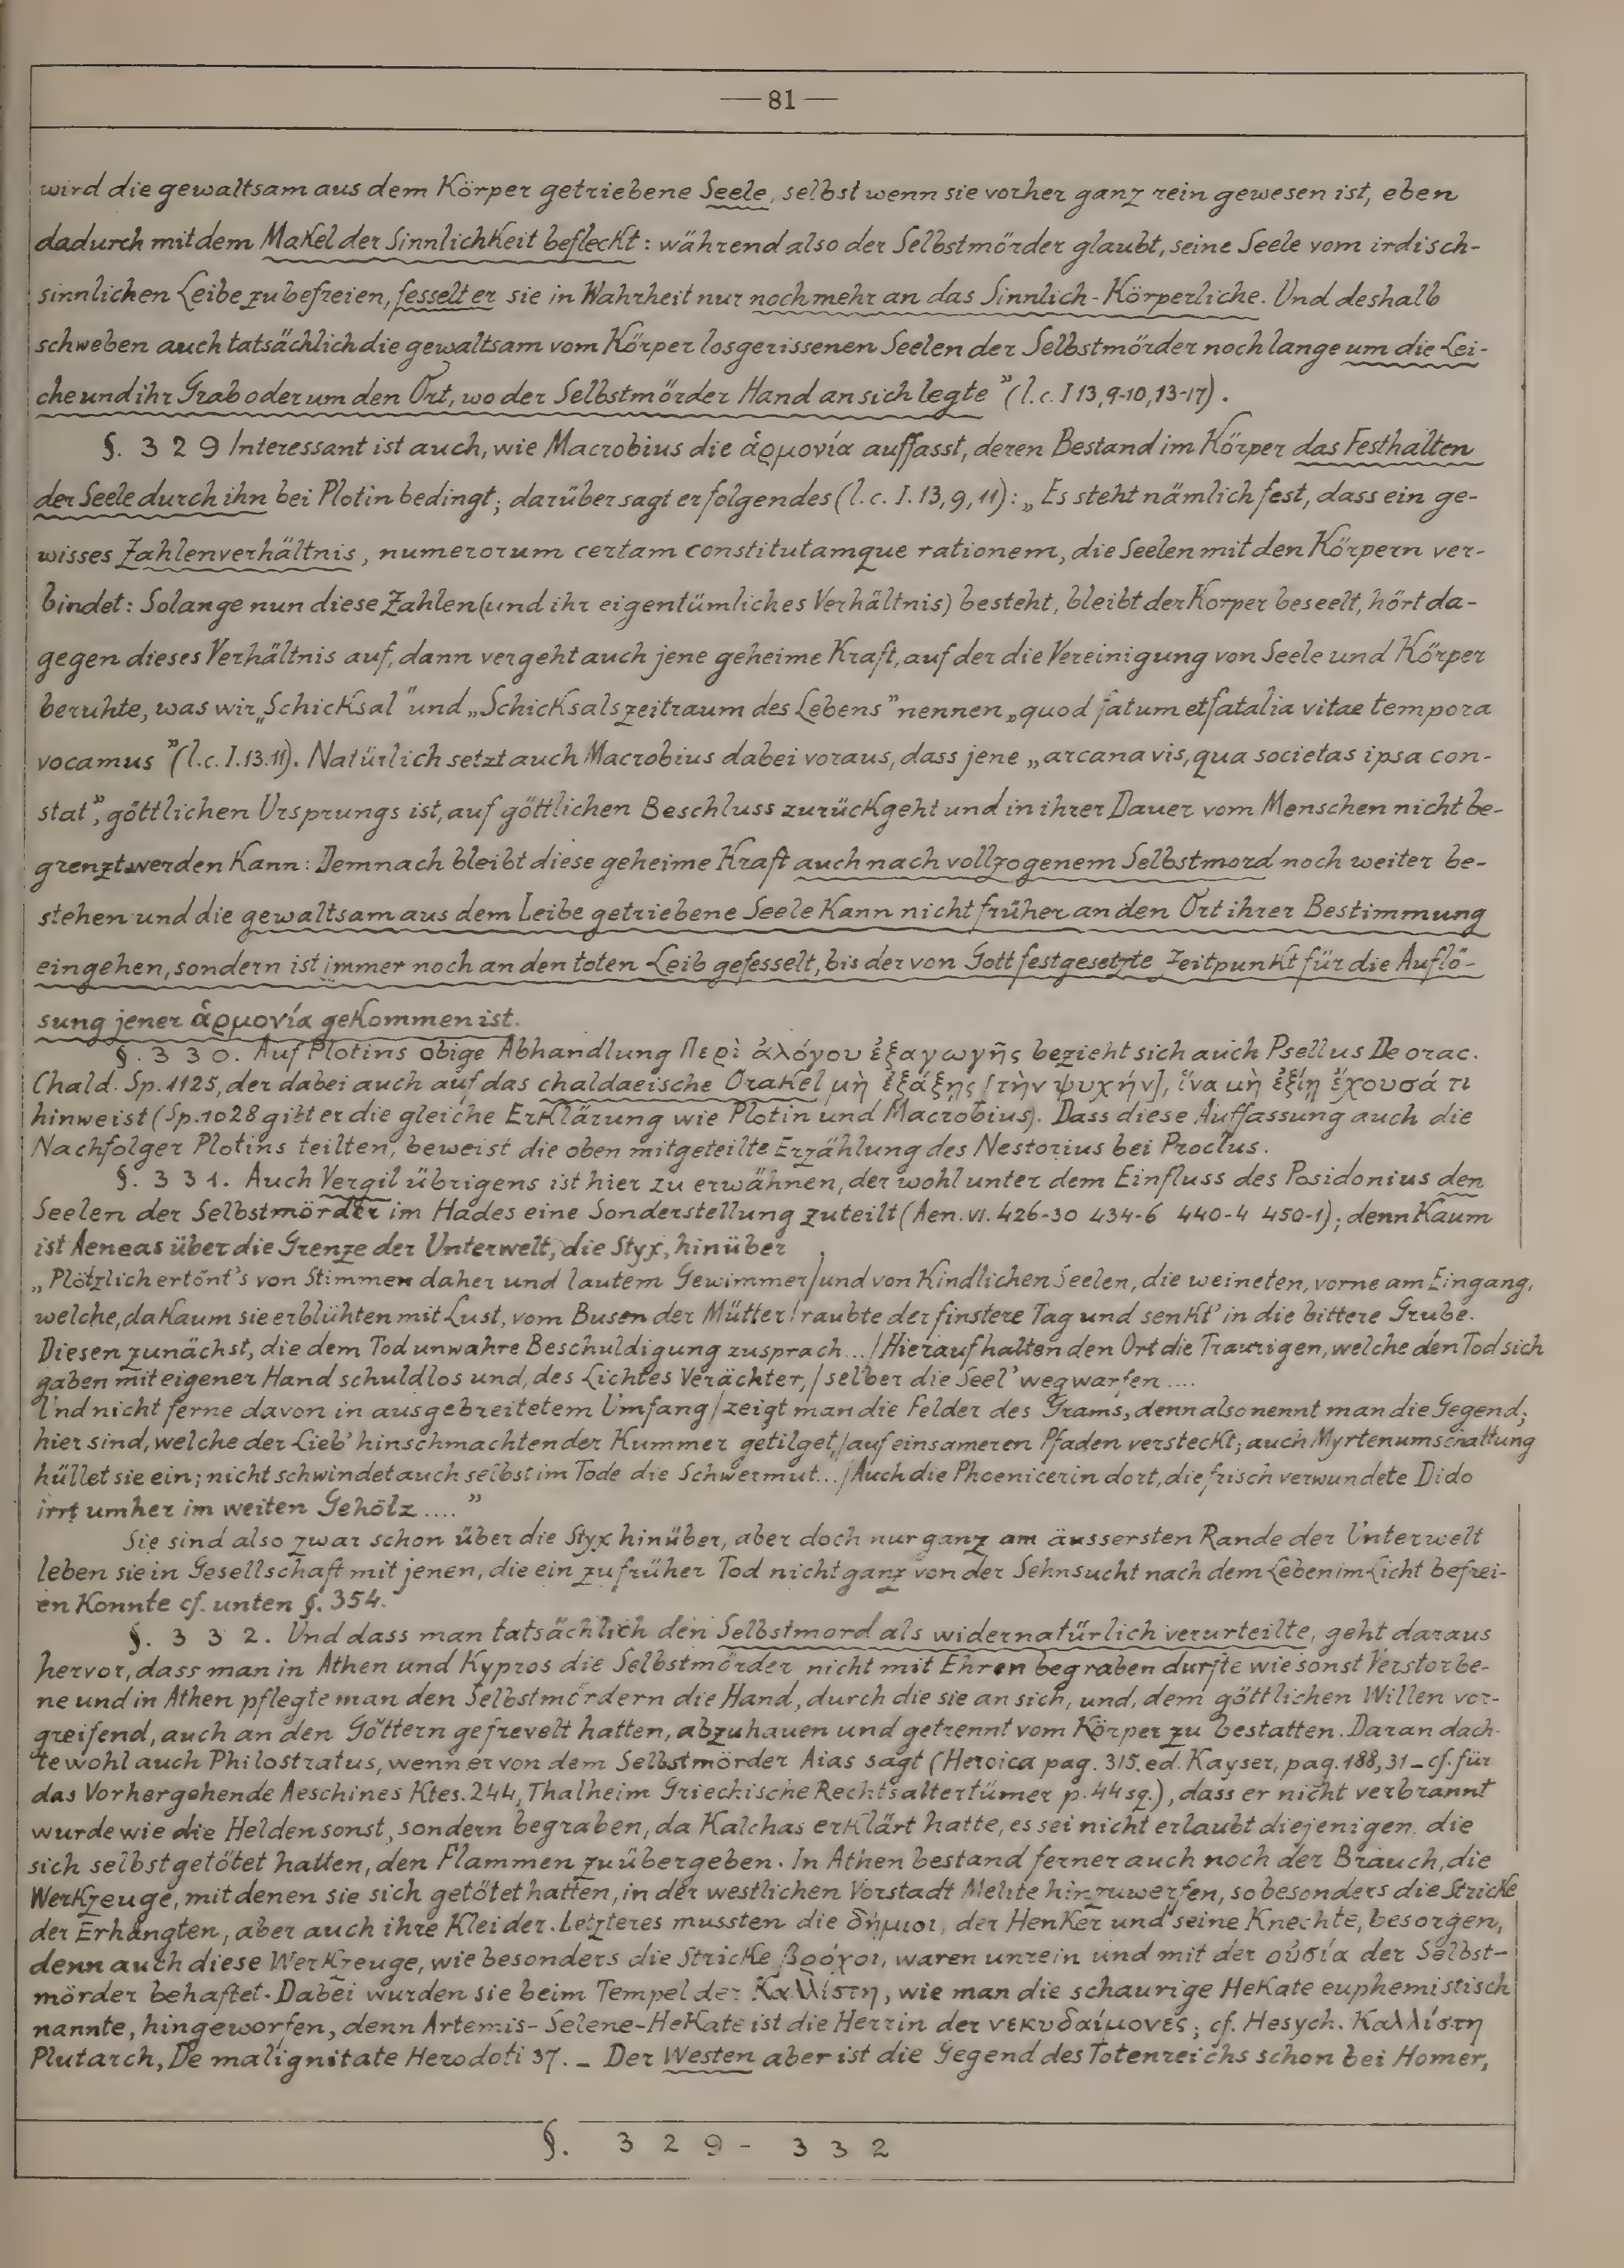 — 81 —
wird die gewaltsam aus dem Körper getriebene Seele, selbst wenn sie vorher ganz rein gewesen ist, eben
dadurch mit dem Makel der Sinnlichkeit befleckt: während also der Selbstmörder glaubt, seine Seele vom irdisch-
sinnlichen Leibe zu befreien, fesselt er sie in Wahrheit nur noch mehr an das Sinnlich-Körperliche. Und deshalb
schweben auch tatsächlich die gewaltsam vom Körper losgerissenen Seelen der Selbstmörder noch lange um die Lei-
che und ihr Grab oder um den Ort, wo der Selbstmörder Hand an sich legte" (l.c. I 13, 9-10, 13-17).
§. 329 Interessant ist auch, wie Macrobius die ἁρμονία auffasst, deren Bestand im Körper das Festhalten
der Seele durch ihn bei Plotin bedingt; darüber sagt er folgendes (l.c. I. 13, 9, 11): „Es steht nämlich fest, dass ein ge-
wisses Zahlenverhältnis, numerorum certam constitutamque rationem, die Seelen mit den Körpern ver-
bindet: Solange nun diese Zahlen (und ihr eigentümliches Verhältnis) besteht, bleibt der Korper beseelt, hört da-
gegen dieses Verhältnis auf, dann vergeht auch jene geheime Kraft, auf der die Vereinigung von Seele und Körper
beruhte, was wir „Schicksal" und „Schicksalszeitraum des Lebens" nennen „quod fatum et fatalia vitae tempora
vocamus" (l.c. I. 13. 11). Natürlich setzt auch Macrobius dabei voraus, dass jene „arcana vis, qua societas ipsa con-
stat", göttlichen Ursprungs ist, auf göttlichen Beschluss zurückgeht und in ihrer Dauer vom Menschen nicht be-
grenzt werden kann: Demnach bleibt diese geheime Kraft auch nach vollzogenem Selbstmord noch weiter be-
stehen und die gewaltsam aus dem Leibe getriebene Seele kann nicht früher an den Ort ihrer Bestimmung
eingehen, sondern ist immer noch an den toten Leib gefesselt, bis der von Gott festgesetzte Zeitpunkt für die Auflö-
sung jener ἁρμονία gekommen ist.
§. 330. Auf Plotins obige Abhandlung Περὶ ἀλόγου ἐξαγωγῆς bezieht sich auch Psellus De orac.
Chald. Sp. 1125, der dabei auch auf das chaldaeische Orakel μὴ ἐξάξῃς [τὴν ψυχήν], ἵνα μὴ ἐξίῃ ἔχουσά τι
hinweist (Sp. 1028 gibt er die gleiche Erklärung wie Plotin und Macrobius). Dass diese Auffassung auch die
Nachfolger Plotins teilten, beweist die oben mitgeteilte Erzählung des Nestorius bei Proclus.
§. 331. Auch Vergil übrigens ist hier zu erwähnen, der wohl unter dem Einfluss des Posidonius den
Seelen der Selbstmörder im Hades eine Sonderstellung zuteilt (Aen. VI. 426-30 434-6 440-4 450-1); denn kaum
ist Aeneas über die Grenze der Unterwelt, die Styx, hinüber
„Plötzlich ertönt's von Stimmen daher und lautem Gewimmer / und von kindlichen Seelen, die weineten, vorne am Eingang,
welche, da kaum sie erblühten mit Lust, vom Busen der Mütter / raubte der finstere Tag und senkt' in die bittere Grube.
Diesen zunächst, die dem Tod unwahre Beschuldigung zusprach... / Hierauf halten den Ort die Traurigen, welche den Tod sich
gaben mit eigener Hand schuldlos und, des Lichtes Verächter, / selber die Seel' wegwarfen ....
Und nicht ferne davon in ausgebreitetem Umfang / zeigt man die Felder des Grams, denn also nennt man die Gegend;
hier sind, welche der Lieb' hinschmachtender Kummer getilget, / auf einsameren Pfaden versteckt; auch Myrtenumschattung
hüllet sie ein; nicht schwindet auch selbst im Tode die Schwermut... / Auch die Phoenicerin dort, die frisch verwundete Dido
irrt umher im weiten Gehölz ...."
Sie sind also zwar schon über die Styx hinüber, aber doch nur ganz am äussersten Rande der Unterwelt
leben sie in Gesellschaft mit jenen, die ein zu früher Tod nicht ganz von der Sehnsucht nach dem Leben im Licht befrei-
en konnte cf. unten §. 354.
§. 332. Und dass man tatsächlich den Selbstmord als widernatürlich verurteilte, geht daraus
hervor, dass man in Athen und Kypros die Selbstmörder nicht mit Ehren begraben durfte wie sonst Verstorbe-
ne und in Athen pflegte man den Selbstmördern die Hand, durch die sie an sich, und, dem göttlichen Willen vor-
greifend, auch an den Göttern gefrevelt hatten, abzuhauen und getrennt vom Körper zu bestatten. Daran dach-
te wohl auch Philostratus, wenn er von dem Selbstmörder Aias sagt (Heroica pag. 315. ed. Kayser, pag. 188, 31 – cf. für
das Vorhergehende Aeschines Ktes. 244, Thalheim Griechische Rechtsaltertümer p. 44 sq.), dass er nicht verbrannt
wurde wie die Helden sonst, sondern begraben, da Kalchas erklärt hatte, es sei nicht erlaubt diejenigen, die
sich selbst getötet hatten, den Flammen zu übergeben. In Athen bestand ferner auch noch der Brauch, die
Werkzeuge, mit denen sie sich getötet hatten, in der westlichen Vorstadt Melite hinzuwerfen, so besonders die Stricke
der Erhängten, aber auch ihre Kleider. Letzteres mussten die δήμιοι, der Henker und seine Knechte, besorgen,
denn auch diese Werkzeuge, wie besonders die Stricke βρόχοι, waren unrein und mit der οὐσία der Selbst-
mörder behaftet. Dabei wurden sie beim Tempel der Καλλίστη, wie man die schaurige Hekate euphemistisch
nannte, hingeworfen, denn Artemis-Selene-Hekate ist die Herrin der νεκυδαίμονες; cf. Hesych. Καλλίστη
Plutarch, De malignitate Herodoti 37. – Der Westen aber ist die Gegend des Totenreichs schon bei Homer,
§. 329 - 332